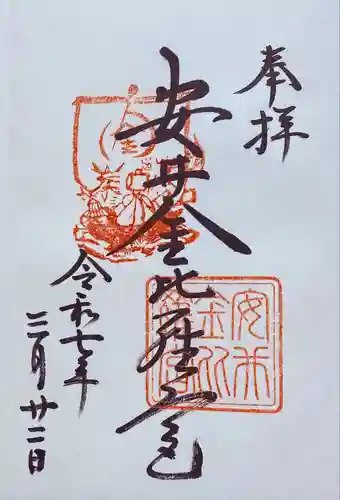 奉拝
安井金比羅宮
令和七年
三月廿二日
安井
金比
羅宮